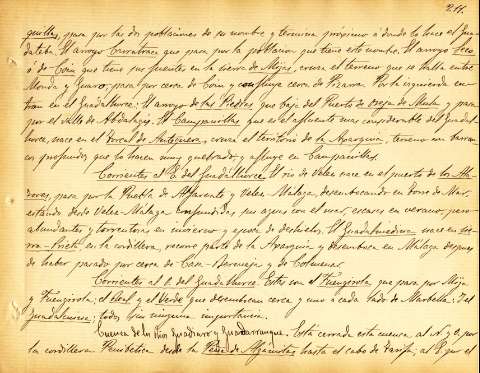 211.
quillas, pasa por las dos poblaciones de su nombre y termina próximo á donde lo hace el Gua
dateba. El arroyo Carratraca que pasa por la poblacion que tiene este nombre. El arroyo Seco
ó de Coin que tiene sus fuentes en la sierra de Mijas, cruza el terreno que se halla entre
Monda y Guaro, pasa por cerca de Coin y confluye cerca de Pizarra. Por la izquierda en
tran en el Guadalhorce: El arroyo de las Piedras que baja del Puerto de Oreja de Mula y pasa
por el Valle de Abdalajis. El Campanillas que es el afluente mas considerable del Guadal
horce, nace en el Torcal de Antequera, cruza el territorio de la Axarquia, terreno con barran
cos profundos que lo hacen muy quebrado, y afluye en Campanillas.
Corrientes al E. del Guadalhorce. El rio de Velez nace en el puerto de los Ala
zores, pasa por la Puebla de Alfarnate y Velez Malaga, desembocando en Torre de Mar,
estando desde Velez-Malaga confundidas sus aguas con el mar, escasas en verano, pero
abundantes y torrentosas en invierno y época de deshielos. El Guadalmedina nace en Sie
rra-Prieta en la cordillera, recorre parte de la Axarquia y desemboca en Málaga despues
de haber pasado por cerca de Casa-Bermeja y de Colmenar.
Corrientes al O. del Guadalhorce. Estas son el Fuengirola que pasa por Mijas
y Fuengirola; el Real y el Verde que desembocan cerca y uno á cada lado de Marbella; y el
Guadalmina; todos sin ninguna importancia.
Cuenca de los Rios Guadiaro y Guadarranque. Está cerrada esta cuenca, al N y O, por
la cordillera Penibética desde la Peña de Algamitas hasta el cabo de Tarifa; al E por el